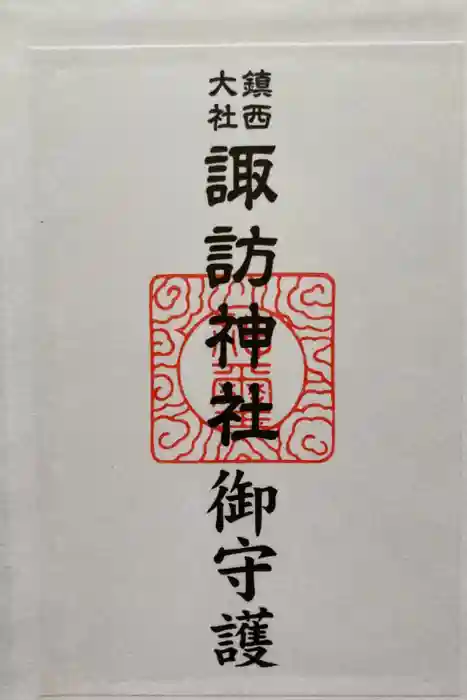 鎮西
大社
諏訪神社御守護